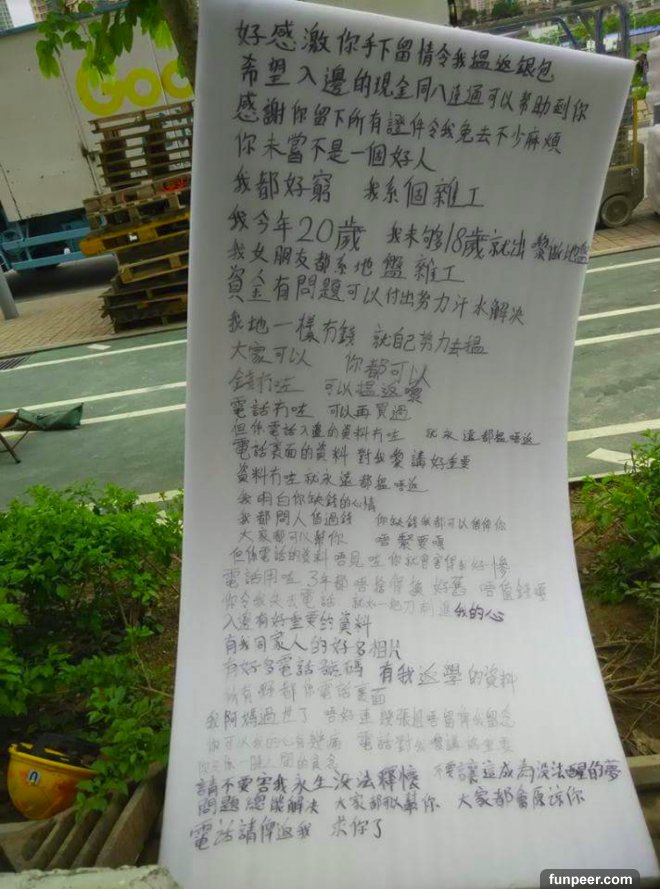 Goo
好感激你手下留情令我搵返銀包
希望入邊的現金同八達通可以幫助到你
感謝你留下所有證件令我免去不少麻煩
你未嘗不是一個好人
我都好窮 我系個雜工
我今年20歲 我未够18歲就出黎做地盤
我女朋友都系地盤雜工
資金有問題可以付出努力汗水解决
我地一樣冇錢 就自己努力去搵
大家可以 你都可以
錢冇咗 可以搵返嚟
電話冇咗 可以再買過
但係電話入邊的資料冇咗 就永遠都搵唔返
電話裏面的資料 對我黎講好重要
資料冇咗就永遠都搵唔返
我明白你缺錢的心情
我都問人借過錢 你缺錢我都可以借俾你
大家都可以幫你 唔緊要嘅
但係電話的資料唔見咗 你就會害得我好慘
電話用咗3年都唔捨得換 好舊 唔值錢嘅
你令我失去電話 就如一把刀刺進我的心
入邊有好重要的資料
有我同家人的好多相片
有好多電話號碼 有我返學的資料
所有野都係電話裏面
我阿媽過世了 唔好連幾張相都唔留俾我留念
電話對我黎講好重要
請不要害我永生沒法釋懷 不要讓這成為沒法醒的夢
問題總能解决 大家都似幫你 大家都會原諒你
電話請俾返我 求你了
funpeer.com